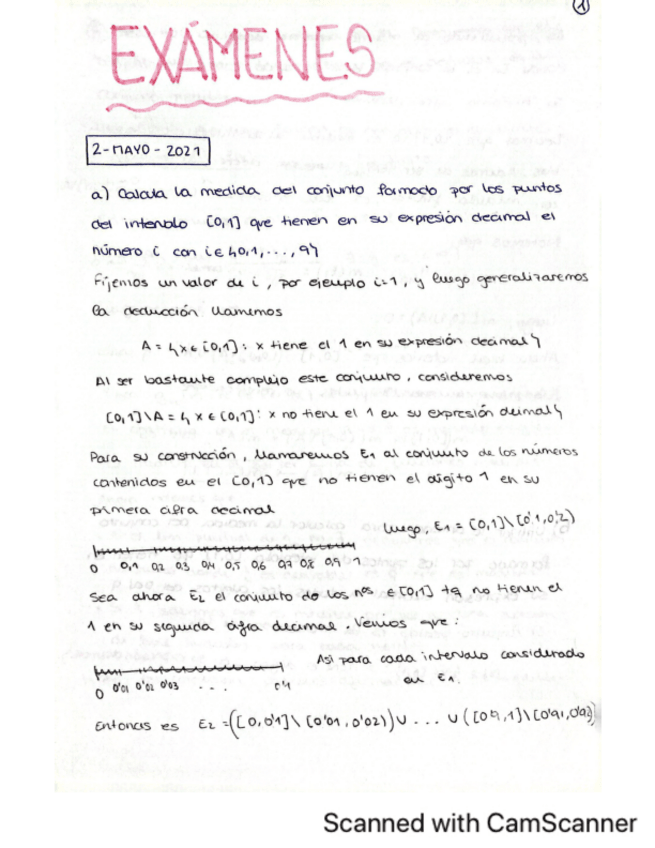 1
EXÁMENES
2-MAYO-2021
a) Calcula la medida del conjunto formado por los puntos
del intervalo [0,1] que tienen en su expresión decimal el
número i con i∈{0,1,...,9}
Fijemos un valor de i, por ejemplo i=1, y luego generalizaremos
la deducción. Llamemos
A = {x∈[0,1]: x tiene el 1 en su expresión decimal}
Al ser bastante complejo este conjunto, consideremos
[0,1]\A = {x∈[0,1]: x no tiene el 1 en su expresión decimal}
Para su construcción, llamaremos E₁ al conjunto de los números
contenidos en el [0,1] que no tienen el dígito 1 en su
primera cifra decimal
Luego, E₁ = [0,1]\[0'1,0'2)
0 0,1 0,2 0,3 0,4 0,5 0,6 0,7 0,8 0,9 1
Sea ahora E₂ el conjunto de los nºs ∈[0,1] tq no tienen el
1 en su segunda cifra decimal. Vemos que:
Así para cada intervalo considerado
en E₁.
0 0'01 0'02 0'03 ... 0'1
Entonces es E₂ = ([0,0'1]\[0'01,0'02))∪ ... ∪([0'9,1]\[0'91,0'92))
Scanned with CamScanner